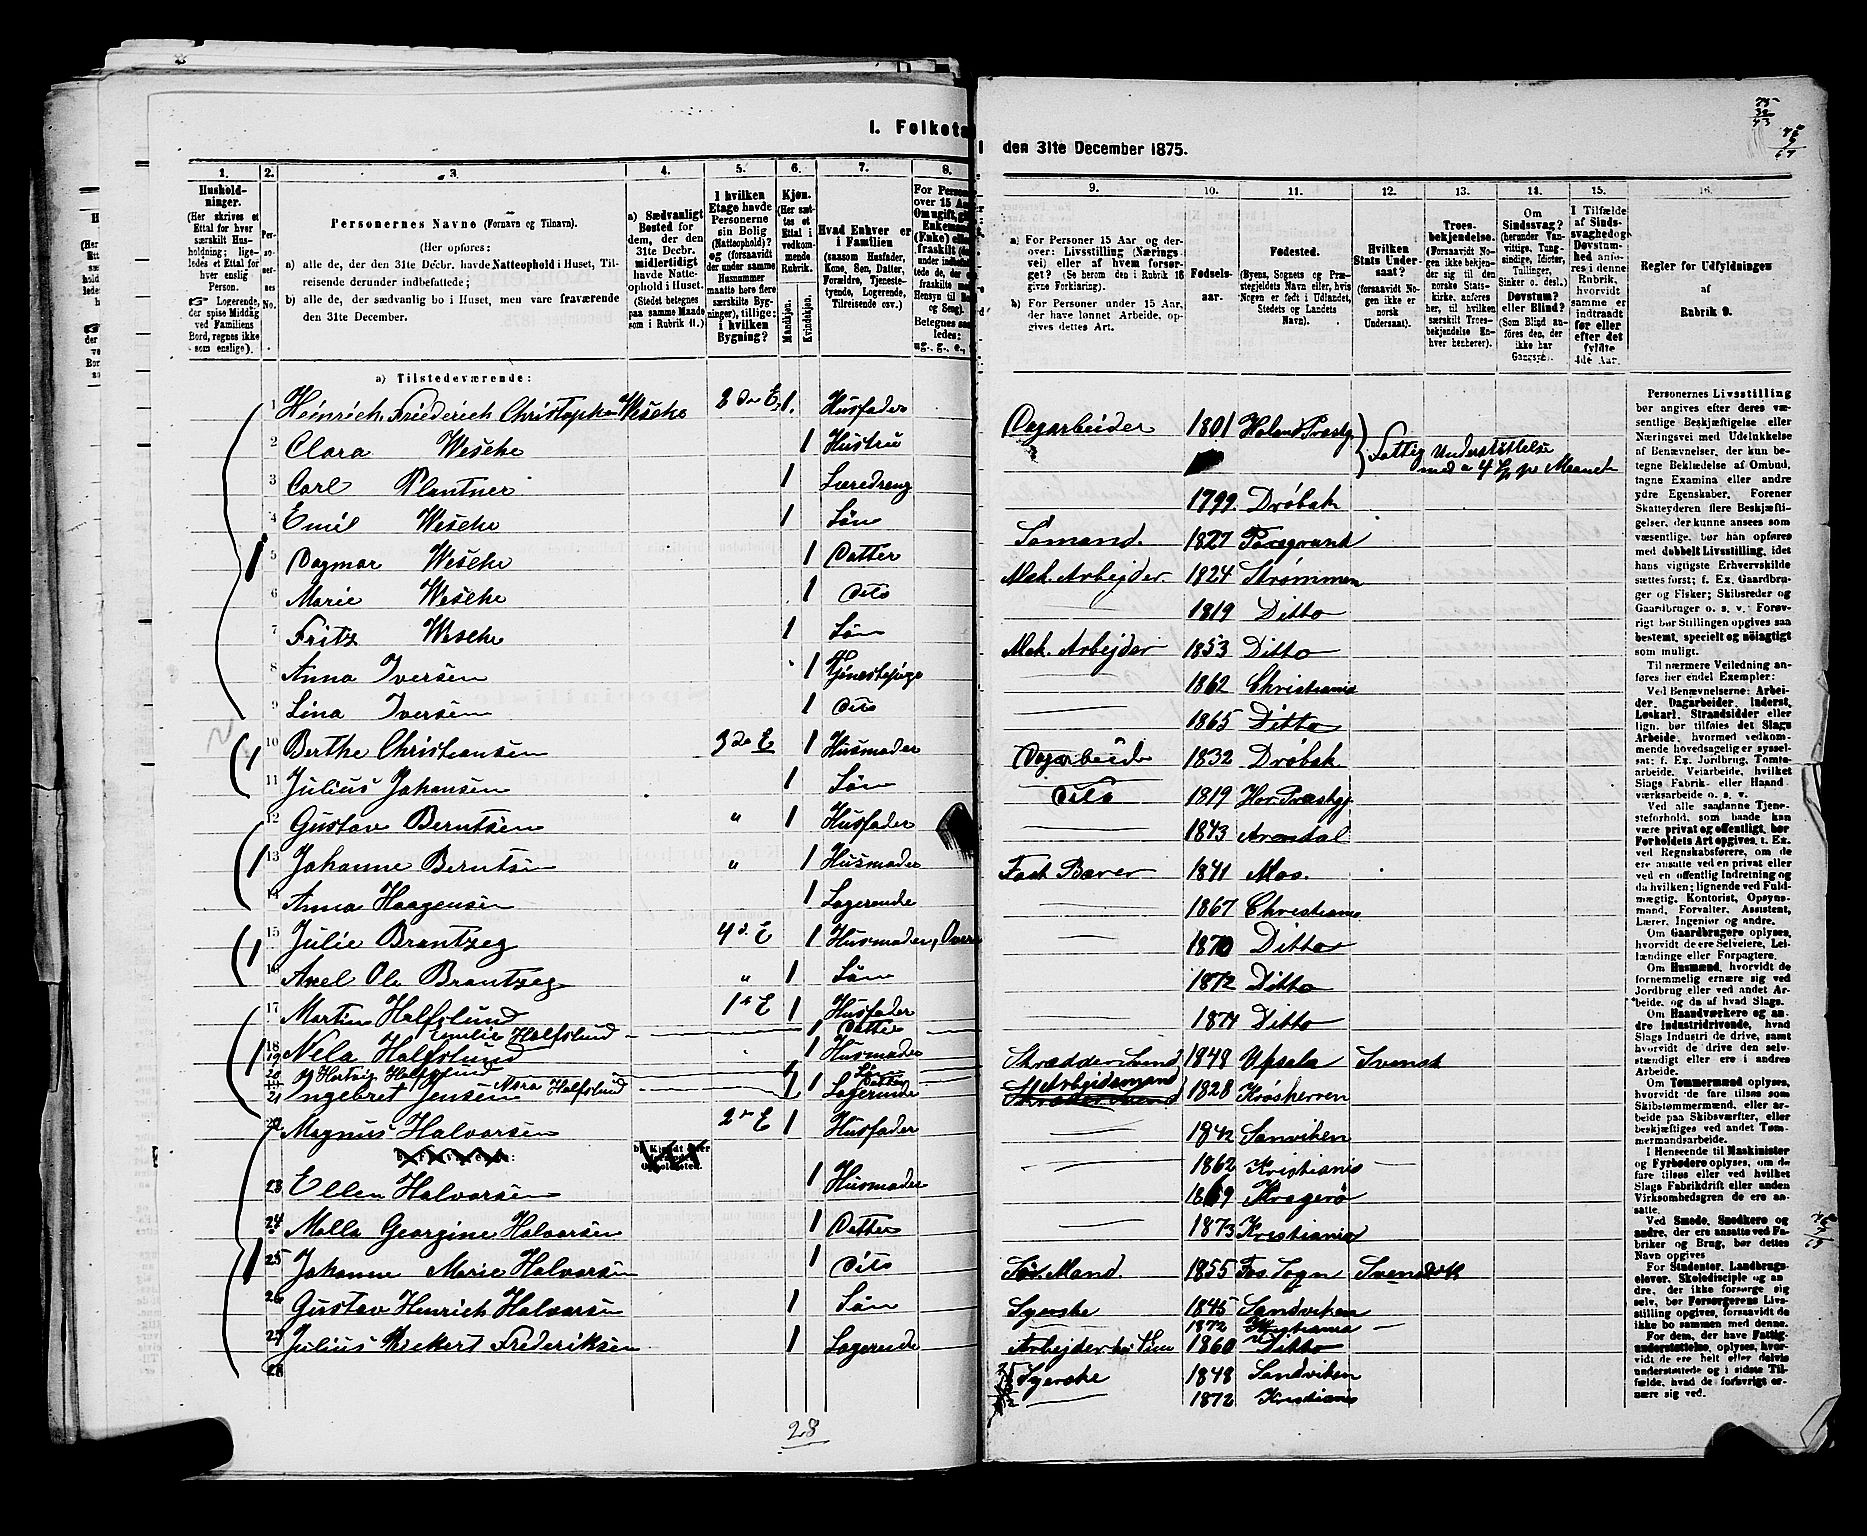 I. Folketæ
1.
2.
3.
4.
5.
6.
7.
8.
Husholdninger.
(Her skrives et Ettal for hver særskilt Husholdning; ligeledes et Ettal for hver enslig Person.
☞ Logerende, der spise Middag ved Familiens Bord, regnes ikke som enslige).
Personernes No.
Personernes Navne (Fornavn og Tilnavn).
(Her opføres:
a) alle de, der den 31te Decbr. havde Natteophold i Huset, Tilreisende derunder indbefattede;
b) alle de, der sædvanlig bo i Huset, men vare fraværende den 31te December.
a) Sædvanligt Bosted for dem, der den 31te Decbr. midlertidigt havde Natteophold i Huset.
(Stedet betegnes paa samme Maade som i Rubrik 11.)
I hvilken Etage havde Personerne sin Bolig (Natteophold)? og (forsaavidt der under samme Husnummer maatte høre flere særskilte Bygninger), tillige: i hvilken Bygning?
Kjøn.
(Her sættes et Ettal i vedkommende Rubrik.
Mandkjøn.
Kvindekjøn.
Hvad Enhver er i Familien
(saasom Husfader, Kone, Søn, Datter, Forældre, Tjenestetyende, Logerende, Tilreisende osv.)
a) Tilstedeværende:
1 Heinrich Friederich Christopher Wesche 2den E. 1. Husfader
2 Clara Wesche 1 Hustru
3 Carl Plantner 1 Læredreng
4 Emil Wesche 1 Søn
5 Dagmar Wesche 1 Datter
6 Marie Wesche 1 Dito
7 Fritz Wesche 1 Søn
8 Anna Iversen 1 Tjenestepige
9 Lina Iversen 1 Dito
10 Berthe Christiansen 3de E 1 Husmoder
11 Julius Johansen 1 Søn
12 Gustav Berntsen " 1 Husfader
13 Johanne Berntsen " 1 Husmoder
14 Anna Haagensen 1 Logerende
15 Julie Brantzeg 4d. E 1 Husmoder,
16 Axel Ole Brantzeg " 1 Søn
17 Martin Halfslund 1st E 1 Husfader
Emilie Halfslund 1 Datter
Nela Halfslund 1 Husmoder
Hertvig Halfslund 1 Søn
Nora Halfslund 1 Datter
21 Ingebret Jensen 1 Logerende
22 Magnus Halvorsen 2den E 1 Husfader
23 Ellen Halvorsen 1 Husmoder
24 Malla Georgine Halvorsen 1 Datter
25 Johanne Marie Halvorsen 1 Dito
26 Gustav Henrich Halvorsen 1 Søn
27 Julius Rickert Frederiksen 1 Logerende
28
28
den 31te December 1875.
9.
10.
11.
12.
13.
14.
15.
16.
a) For Personer 15 Aar og derover: Livsstilling (Næringsvei) eller af hvem forsørget? (Se herom den i Rubrik 16 givne Forklaring).
b) For Personer under 15 Aar, der have lønnet Arbeide, opgives dettes Art.
Fødselsaar.
Fødested.
(Byens, Sognets og Præstegjeldets Navn eller, hvis Nogen er født i Udlandet, Stedets og Landets Navn).
Hvilken Stats Undersaat?
(forsaavidt Nogen ikke er norsk Undersaat).
Troesbekjendelse.
(Forsaavidt Nogen ikke bekjender sig til den norske Statskirke, anføres her, til hvilken særskilt Troesbekjendelse Enhver henhører).
Om Sindssvag? (herunder Vanvittige, Tungsindige, Idioter, Tullinger, Sinker o. desl.) Døvstum? eller Blind?
(Som Blind anføres den, der ikke har Gangsyn).
I Tilfælde af Sindssvaghed og Døvstumhed anføres i denne Rubrik, hvorvidt samme er indtraadt før eller efter det fyldte 4de Aar.
Regler for Udfyldningen af Rubrik 9.
Dagarbeider 1801 Holand Præstg.
Fattig Understøttelse
med a 4 Sp pr Maanet
1799 Drøbak
Sømand. 1827 Porsgrund
Mek. Arbejder. 1824 Strømmen
1819 Ditto
Mek. Arbejder 1853 Ditto
1862 Christiania
1865 Ditto
Dagarbeide 1832 Drøbak
Dito 1819 Hov. Præstgj
1843 Arendal
Fast Bærer 1841 Mos.
1867 Christiania
1870 Ditto
1872 Ditto
1874 Ditto
Skrædder Svend 1848 Upsala Svensk
Arbejdsmand 1828 Krøsherren
1842 Sanviken
1862 Kristiania
1869 Kragerø
1873 Kristiania
Søe. Mand. 1855 Fos Sogn Svensk
Syerske 1845 Sandviken
1872 Kristiania
1860 Ditto
Syerske 1848 Sandviken
1872 Kristiania
Personernes Livsstilling bør angives efter deres væsentlige Beskjæftigelse eller Næringsvei med Udelukkelse af Benævnelser, der kun betegne Beklædelse af Ombud, tagne Examina eller andre ydre Egenskaber. Forener Skatteyderen flere Beskjæftigelser, der kunne ansees som væsentlige, bør han opføres med dobbelt Livsstilling, idet hans vigtigste Erhvervskilde sættes først; f. Ex. Gaardbruger og Fisker; Skibsreder og Gaardbruger o. s. v. Forøvrigt bør Stillingen opgives saa bestemt, specielt og nøiagtigt som muligt.
Til nærmere Veiledning anføres her endel Exempler:
Ved Benævnelserne: Arbeider, Dagarbeider, Inderst, Løskarl, Strandsidder eller lign. bør tilføies det Slags Arbeide, hvormed vedkommende hovedsagelig er sysselsat; f. Ex. Jordbrug, Tomtearbeide, Veiarbeide, hvilket Slags Fabrik- eller Haandværksarbeide o. s. v.
Ved alle saadanne Tjenesteforhold, som baade kan være privat og offentligt, bør Forholdets Art opgives, t. Ex. ved Regnskabsførere, om de ere ansatte ved en privat eller ved en offentlig Indretning og da hvilken; lignende ved Fuldmægtig, Kontorist, Opsynsmand, Forvalter, Assistent, Lærer, Ingeniør og andre.
Om Gaardbrugere oplyses, hvorvidt de ere Selveiere, Leilændinge eller Forpagtere.
Om Husmænd, hvorvidt de fornemmelig ernære sig ved Jordbrug eller ved andet Arbeide, og da af hvad Slags.
Om Haandværkere og andre industridrivende, hvad Slags Industri de drive, samt hvorvidt de drive den selvstændigt eller ere i andres Arbeide.
Om Tømmermænd oplyses, hvorvidt de fare tilsøs som Skibstømmermænd, eller arbeide paa Skibsværfter, eller beskjæftiges ved andet Tømmermandsarbeide.
I Henseende til Maskinister og Fyrbødere oplyses, om de fare tilsøs eller ved hvilket Slags Fabrikdrift eller anden Virksomhedsgren de ere ansatte.
Ved Smede, Snedkere og andre, der ere ansatte ved Fabriker og Brug, bør dettes Navn opgives.
For Studenter, Landbrugselever, Skoledisciple og andre, der ikke forsørge sig selv, bør Forsørgerens Livsstilling opgives, forsaavidt de ikke bo sammen med denne.
For dem, der have Fattigunderstøttelse, oplyses, hvorvidt de ere helt eller delvis understøttede og i sidste Tilfælde, hvad de forøvrigt ernære sig ved.